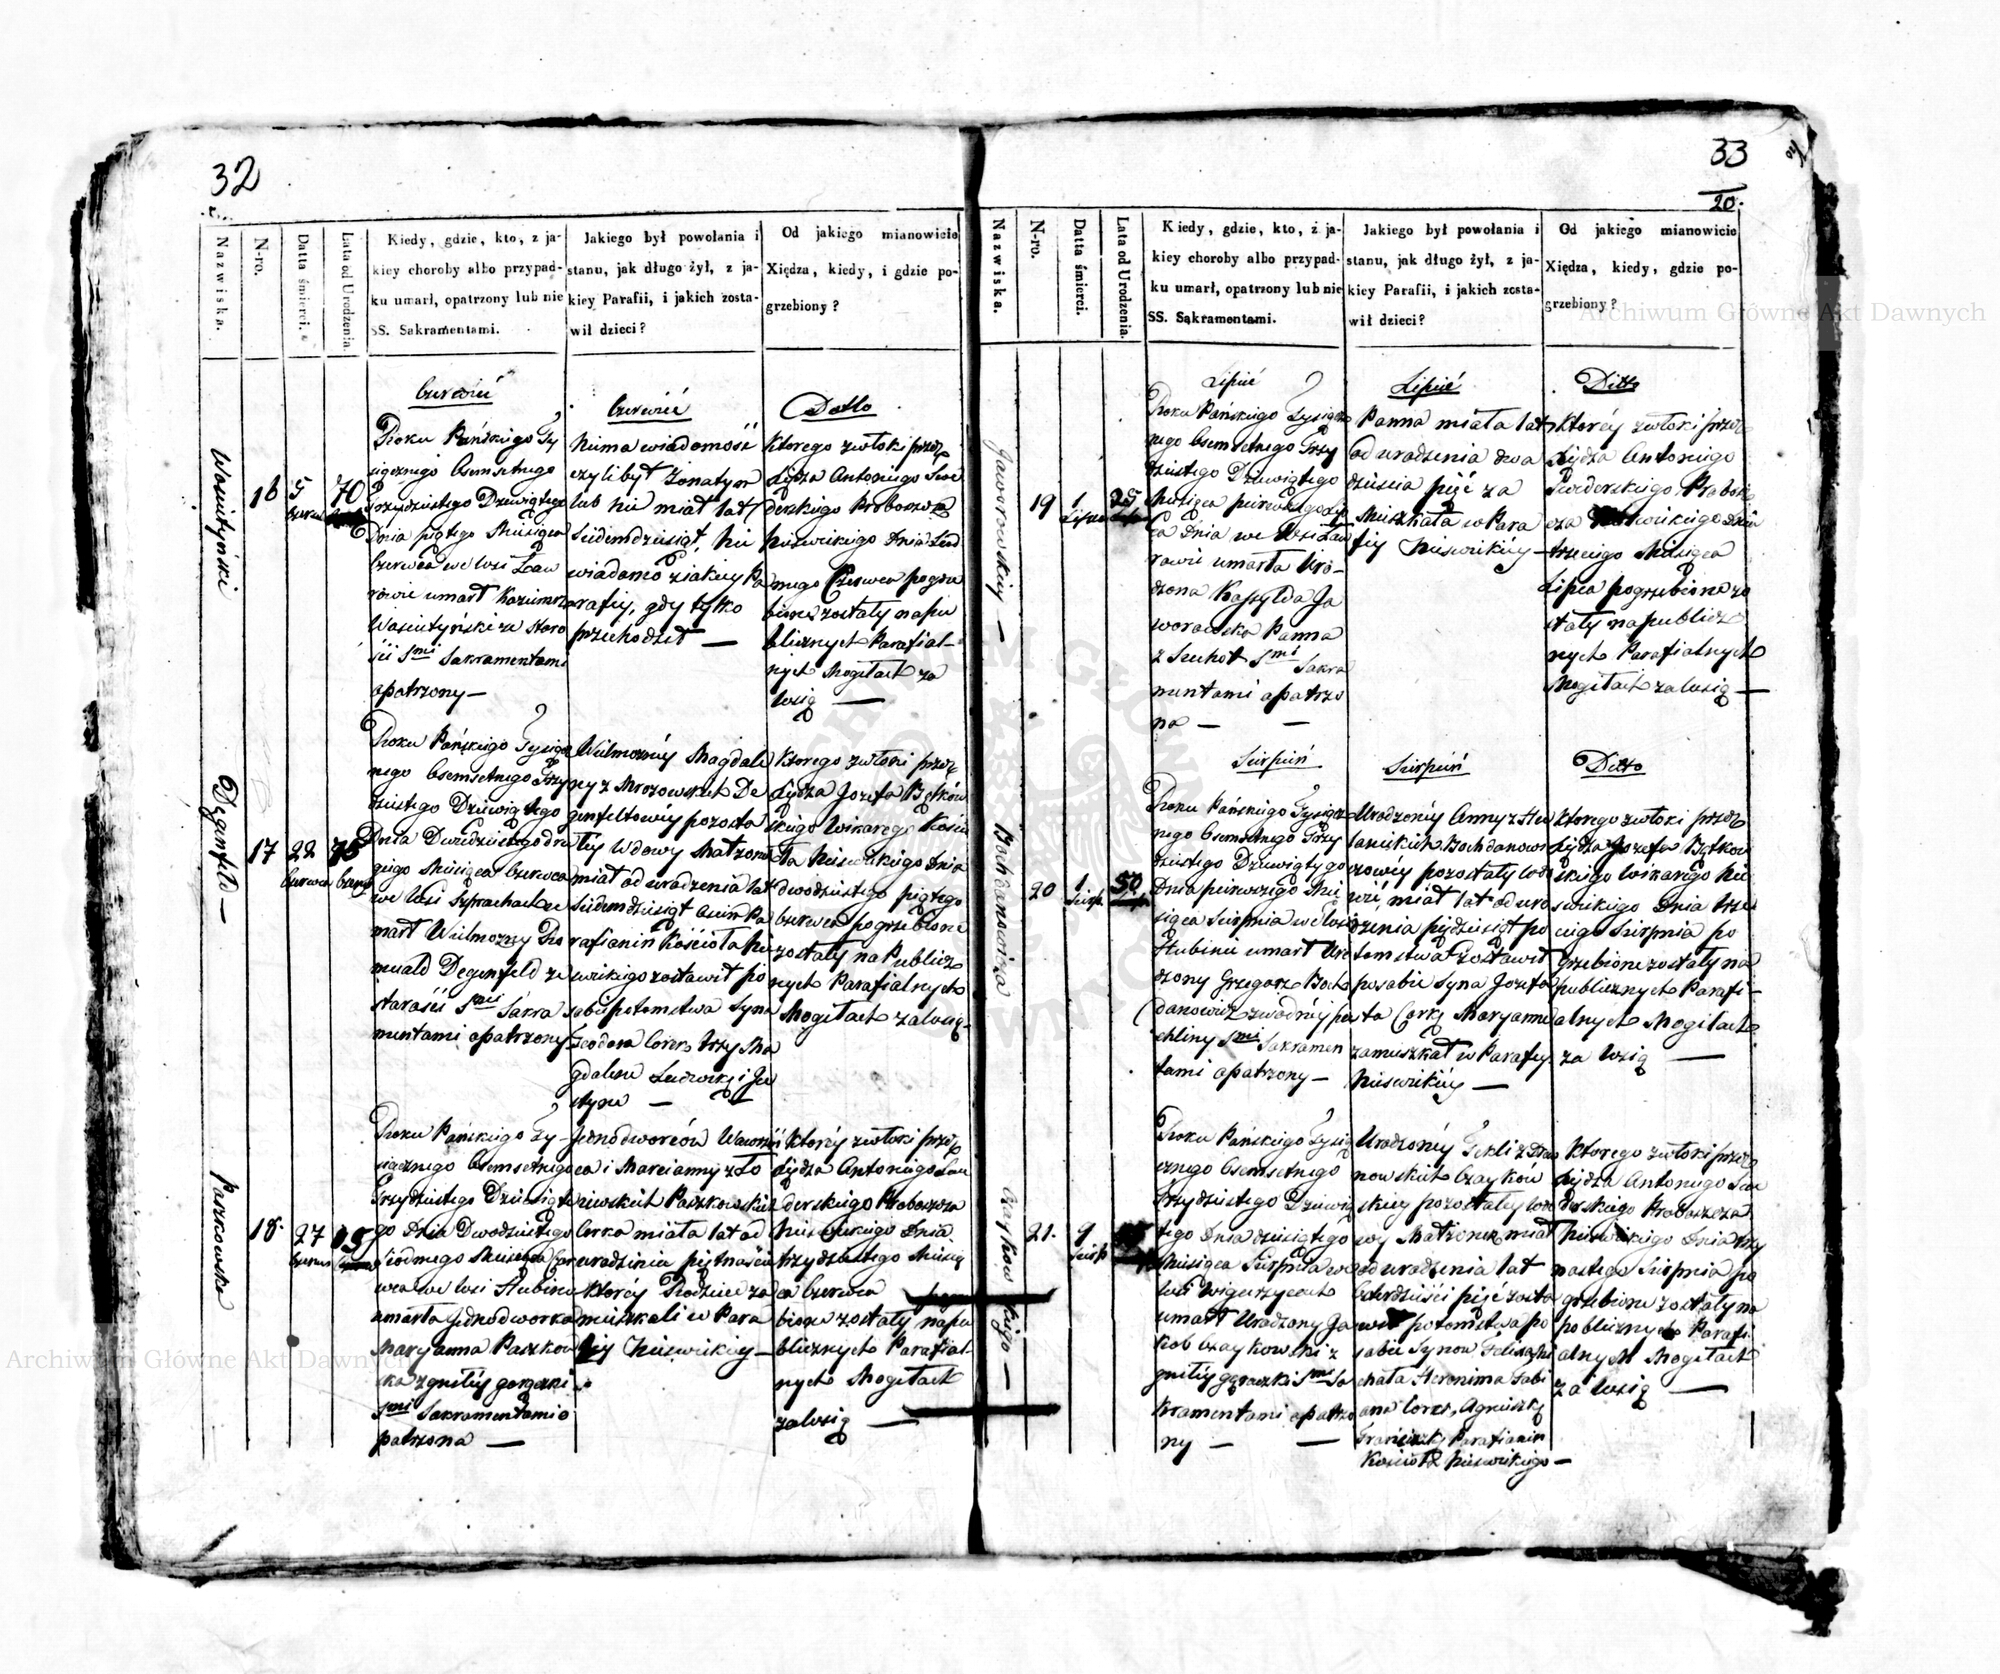 32
Nazwiska.
N-ro.
Datta śmierci.
Lata od Urodzenia.
Kiedy, gdzie, kto, z ja-
kiey choroby albo przypad-
ku umarł, opatrzony lub nie
SS. Sakramentami.
Jakiego był powołania i
stanu, jak długo żył, z ja-
kiey Parafii, i jakich zosta-
wił dzieci?
Od jakiego mianowicie
Xiędza, kiedy, i gdzie po-
grzebiony?
16
5
70
Czerwiec
Roku Pańskiego Ty
siącznego Osemsetnego
Trzydziestego Dziewiątego
Dnia piątego Miesiąca
Czerwca we wsi Ław
rowie umarł Kazimirz
ze staro
ści Smi Sakramentami
opatrzony —
Czerwiec
Niema wiadomość
czyli był żonatym
lub nie miał lat
siedemdziesiąt, nie
wiadomo z jakiey Pa
rafiy, gdy tylko
przechodził —
Ditto
Ktorego zwłoki przez
Xiędza Antoniego Swi
derskiego Proboszcza
Nieświckiego Dnia Siod
mego Czerwca pogrze
bione zostały na pu
blicznych Parafial-
nych Mogiłach za
wsią —
Degenfeld —
17
22
Czerwca
Roku Pańskiego Tysiącz
nego Osemsetnego Trzy
dziestego Dziewiątego
Dnia Dwudziestego dru
giego Miesiąca Czerwca
we wsi Szprachach u
marł Wielmożny Ro
muald Degenfeld ze
starości Smi Sakra
mentami opatrzony
Wielmożnéy Magdale
ny z Mrozowskich De
genfeltowéy pozosta
łéy Wdowy Małżonek
miał od urodzenia lat
siedemdziesiąt osim Pa
rafianin Kościoła Nie
świckiego zostawił po
sobie potomstwa Syna
Teodora Corek trzy Ma
gdalene Ludwikę i Ju
styne —
Ktorego zwłoki przez
Xiędza Jozefa Bątkow
skiego Wikarego Kości
oła Nieświckiego Dnia
dwodziestego piątego
Czerwca pogrzebione
zostały na Publicz
nych Parafialnych
Mogiłach za wsią -
Paszkowska
18.
27
Roku Pańskiego Ty-
siącznego Osemsetnego
Trzydziestego Dziewiąte
go Dnia Dwodziestego
Siodmego Miesiąca Czer
wca we wsi Hubinie
umarła Jednodworka
Maryanna Paszkow
ska z gniłéy gorączki
Smi Sakramentami o
patrzona —
Jednodworców Wawrzyń
ca i Marcianny z Ło
niewskich Paszkowskich
Corka miała lat od
urodzenia piętnaście
Ktoréy Rodzice za
mieszkali w Para
fiy Nieświckiéy —
Ktoréy zwłoki przez
Xiędza Antoniego Swi
derskiego Proboszcza
Nieświckiego Dnia
trzydziestego Miesią
ca Czerwca pogrze
bione zostały na pu
blicznych Parafial
nych Mogiłach
za wsią —
33
20.
Nazwiska.
N-ro.
Datta śmierci.
Lata od Urodzenia.
Kiedy, gdzie, kto, z ja-
kiey choroby albo przypad-
ku umarł, opatrzony lub nie
SS. Sakramentami.
Jakiego był powołania i
stanu, jak długo żył, z ja-
kiey Parafii, i jakich zosta-
wił dzieci?
Od jakiego mianowicie
Xiędza, kiedy, gdzie po-
grzebiony?
Jaworowskiey —
19
1
Lipca
25
Lipiec
Roku Pańskiego Tysiącz
nego Osemsetnego Trzy
dziestego Dziewiątego
Miesiąca pierwszego Lip
ca Dnia we Wsi Ław
rowie umarła Uro-
dzona Kassylda Ja
worowska Panna
z Suchot Smi Sakra
mentami opatrzo
na —
Lipiec
Panna miała lat
od urodzenia dwa
dziescia pięć za
mieszkała w Para
fiy Nieświckiéy —
Ditto
Ktoréy zwłoki przez
Xiędza Antoniego
Swiderskiego Probosz
cza Nieświckiego Dnia
trzeciego Miesiąca
Lipca pogrzebione zo
stały na publicz
nych Parafialnych
Mogiłach za wsią —
Bochdanowicza
20
1
Sierp.
50
Sierpień
Roku Pańskiego Tysiącz
nego Osemsetnego Trzy
dziestego Dziewiątego
Dnia pierwszego Mie
siąca Sierpnia we Wsi
Hubinie umarł Uro
dzony Grzegorz Boch
danowicz z wodnéy pu
chliny Smi Sakramen
tami opatrzony —
Sierpień
Urodzonéy Anny z
Bochdanowi
czowéy pozostałéy wdo
wie, miał lat od uro
dzenia pięćdziesiąt po
tomstwa zostawił
po sobie Syna Jozefa
ta Corkę Maryanne
zamieszkał w Parafiy
Nieświckiéy —
Ditto
Ktorego zwłoki przez
Xiędza Jozefa Bątkow
skiego Wikarego Nie
świckiego Dnia trze
ciego Sierpnia po
grzebione zostały na
publicznych Parafi-
alnych Mogiłach
za wsią —
Czaykowskiego —
21.
9
Sierp
Roku Pańskiego Tysią
cznego Osemsetnego
trzydziestego Dziewią
tego Dnia dziewiątego
Miesiąca Sierpnia we
wsi Wiguryczach
umarł Urodzony Ja
kob Czaykowski z
gniłéy gorączki Smi Sa
kramentami opatrzo
ny — —
Urodzonéy Tekli z
nowskich Czaykow
skiey pozostałéy wdo
wy Małżonek miał
od urodzenia lat
Czterdzieści pięć zosta
wił potomstwa po
sobie Synow Felixa Mi
chała Heronima Sabi
ana Corek, Agnieszkę
Franciszkę Parafianin
Kościoła Nieświckiego —
Ktorego zwłoki przez
Xiędza Antoniego Swi
derskiego Proboszcza
Nieświckiego Dnia trzy
nastego Sierpnia po
grzebione zostały na
poblicznych Parafi
alnych Mogiłach
za wsią —
Archiwum Główne Akt Dawnych
Archiwum Główne Akt Dawnych